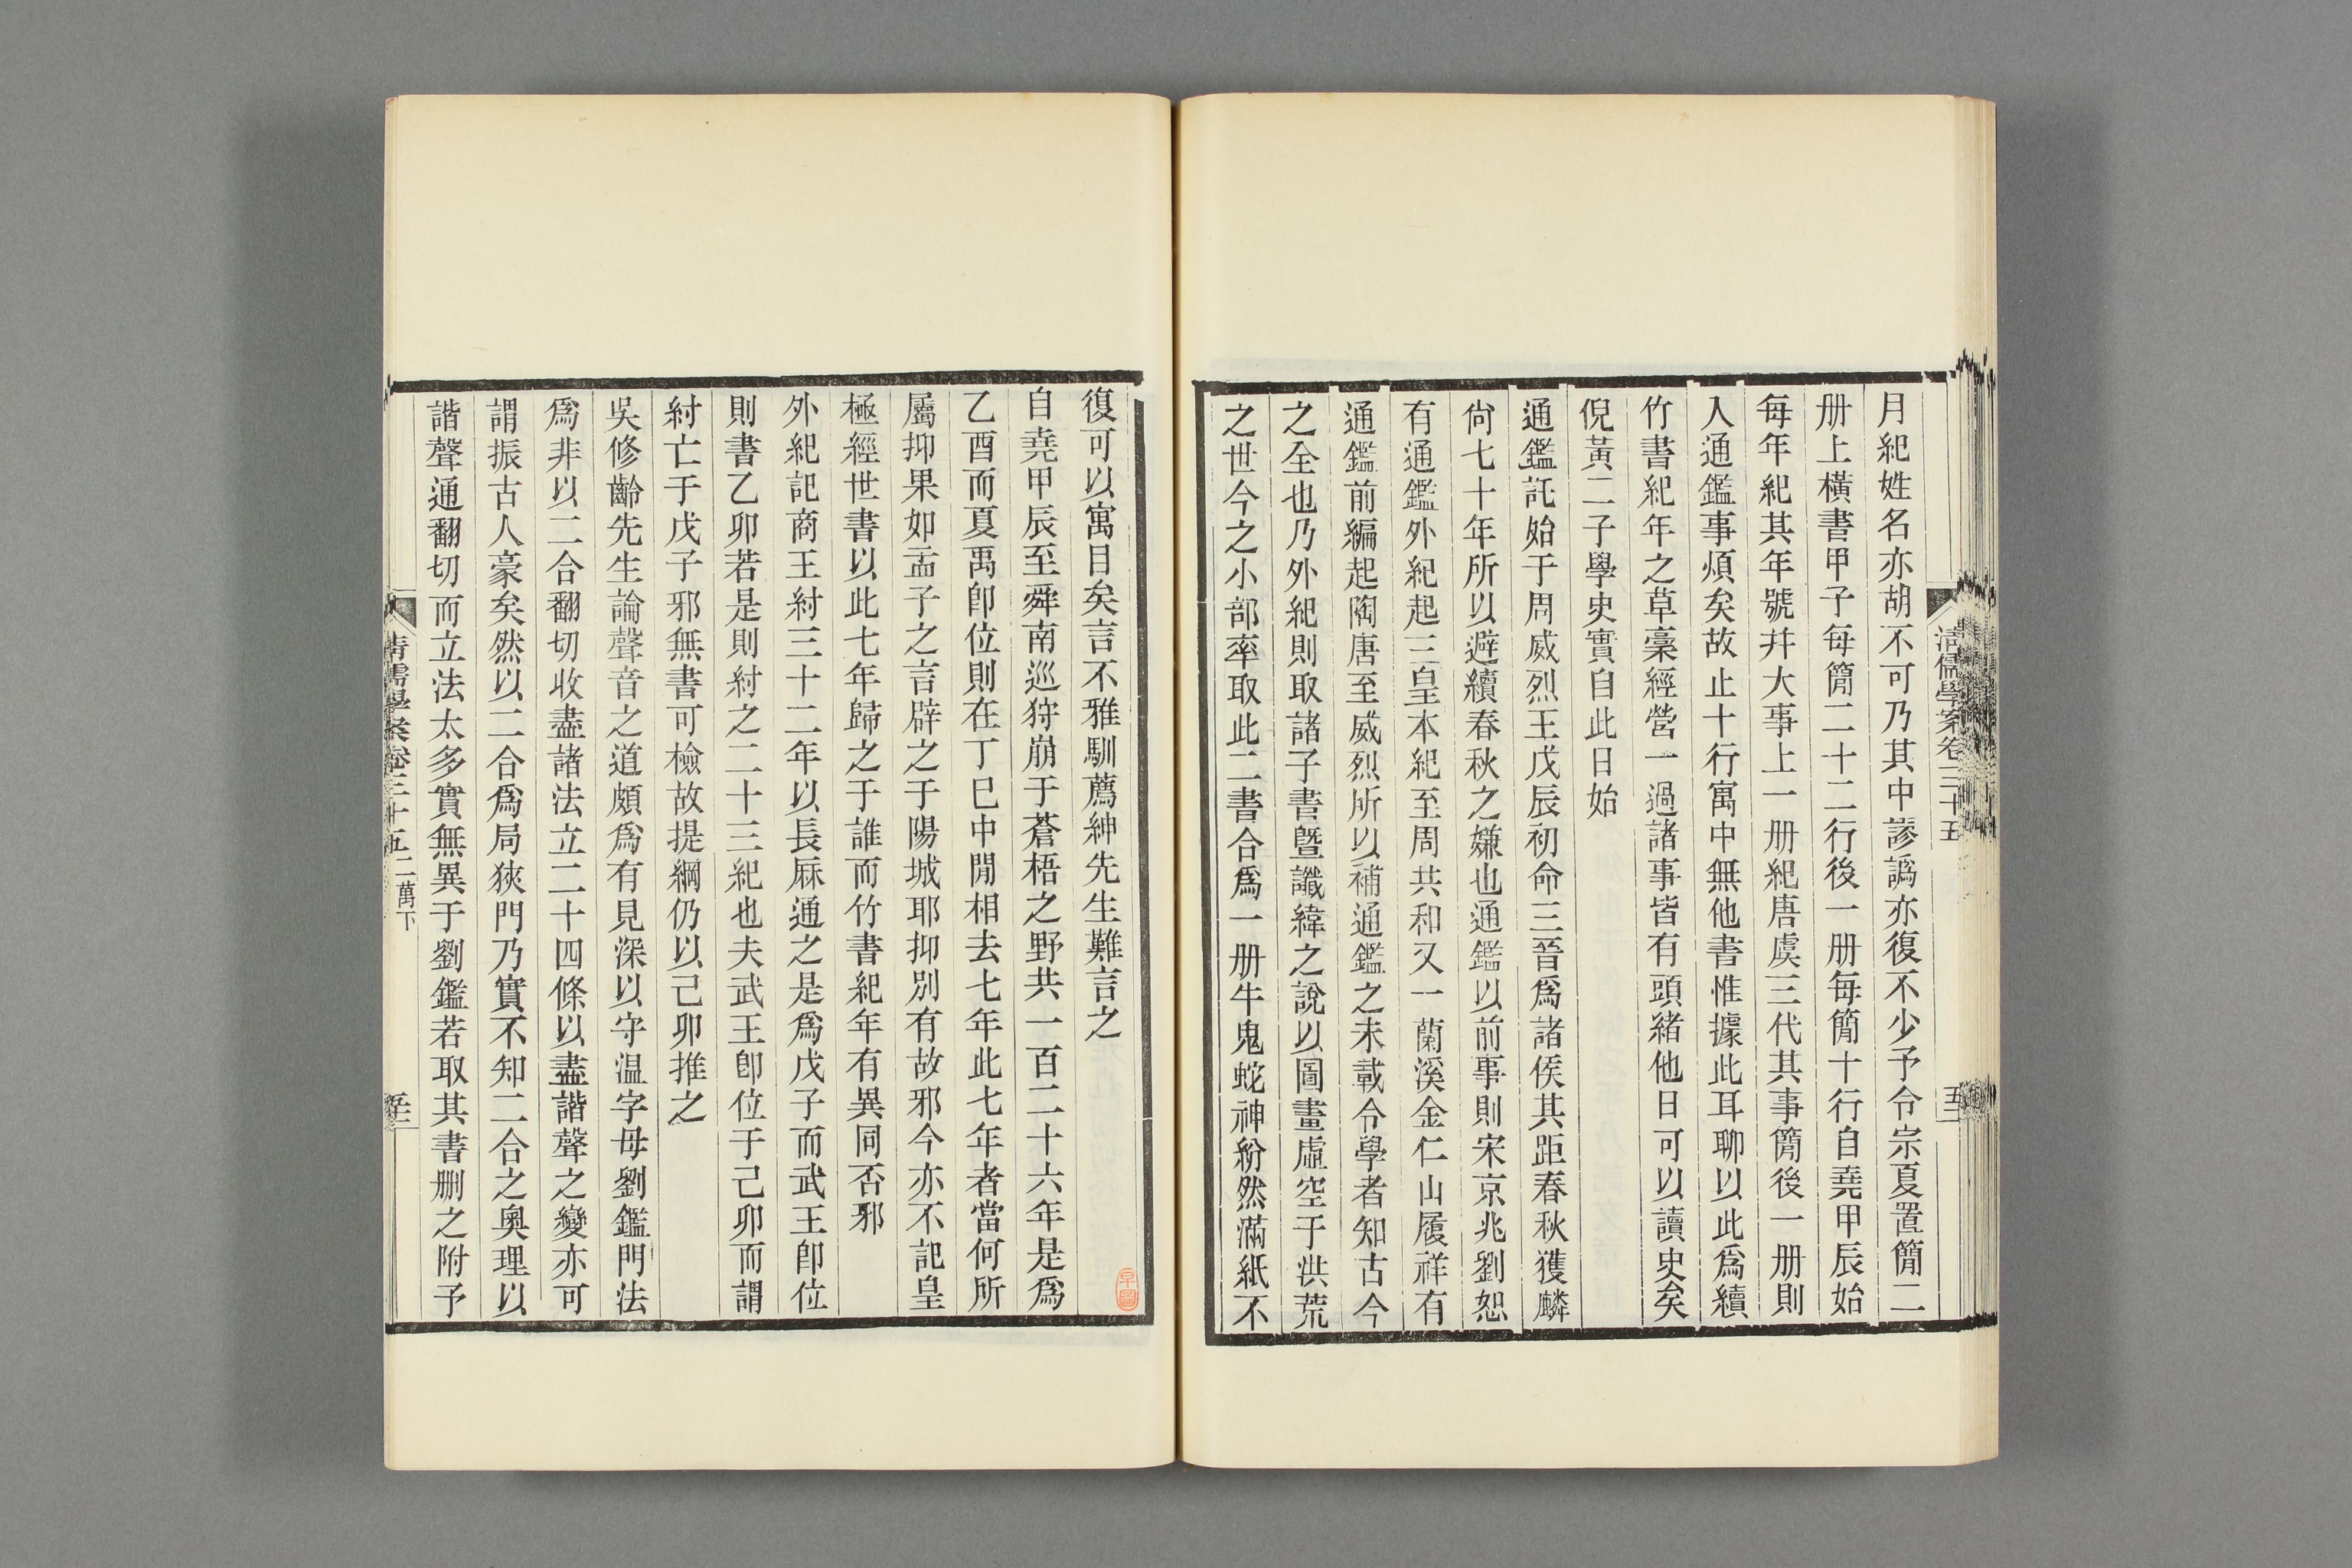 月紀姓名亦胡不可乃其中謬譌亦復不少予令宗夏置簡二
册上橫書甲子每簡二十二行後一册每簡十行自堯甲辰始
每年紀其年號幷大事上一册紀唐虞三代其事簡後一册則
入通鑑事煩矣故止十行寓中無他書惟據此耳聊以此爲續
竹書紀年之草藁經營一過諸事皆有頭緒他日可以讀史矣
倪黃二子學史實自此日始
通鑑託始于周威烈王戊辰初命三晉爲諸侯其距春秋獲麟
尙七十年所以避續春秋之嫌也通鑑以前事則宋京兆劉恕
有通鑑外紀起三皇本紀至周共和又一蘭溪金仁山履祥有
通鑑前編起陶唐至威烈所以補通鑑之未載令學者知古今
之全也乃外紀則取諸子書曁讖緯之說以圖畫虛空于洪荒
之世今之小部率取此二書合爲一册牛鬼蛇神紛然滿紙不
清儒學案卷三十五
復可以寓目矣言不雅馴薦紳先生難言之
自堯甲辰至舜南巡狩崩于蒼梧之野共一百二十六年是爲
乙酉而夏禹卽位則在丁巳中閒相去七年此七年者當何所
屬抑果如孟子之言辟之于陽城耶抑別有故邪今亦不記皇
極經世書以此七年歸之于誰而竹書紀年有異同否邪
外紀記商王紂三十二年以長厤通之是爲戊子而武王卽位
則書乙卯若是則紂之二十三紀也夫武王卽位于己卯而謂
紂亡于戊子邪無書可檢故提綱仍以己卯推之
吳修齡先生論聲音之道頗爲有見深以守温字母劉鑑門法
爲非以二合翻切收盡諸法立二十四條以盡諧聲之變亦可
謂振古人豪矣然以二合爲局狹門乃實不知二合之奧理以
諧聲通翻切而立法太多實無異于劉鑑若取其書删之附予
清儒學案卷三十五二萬下